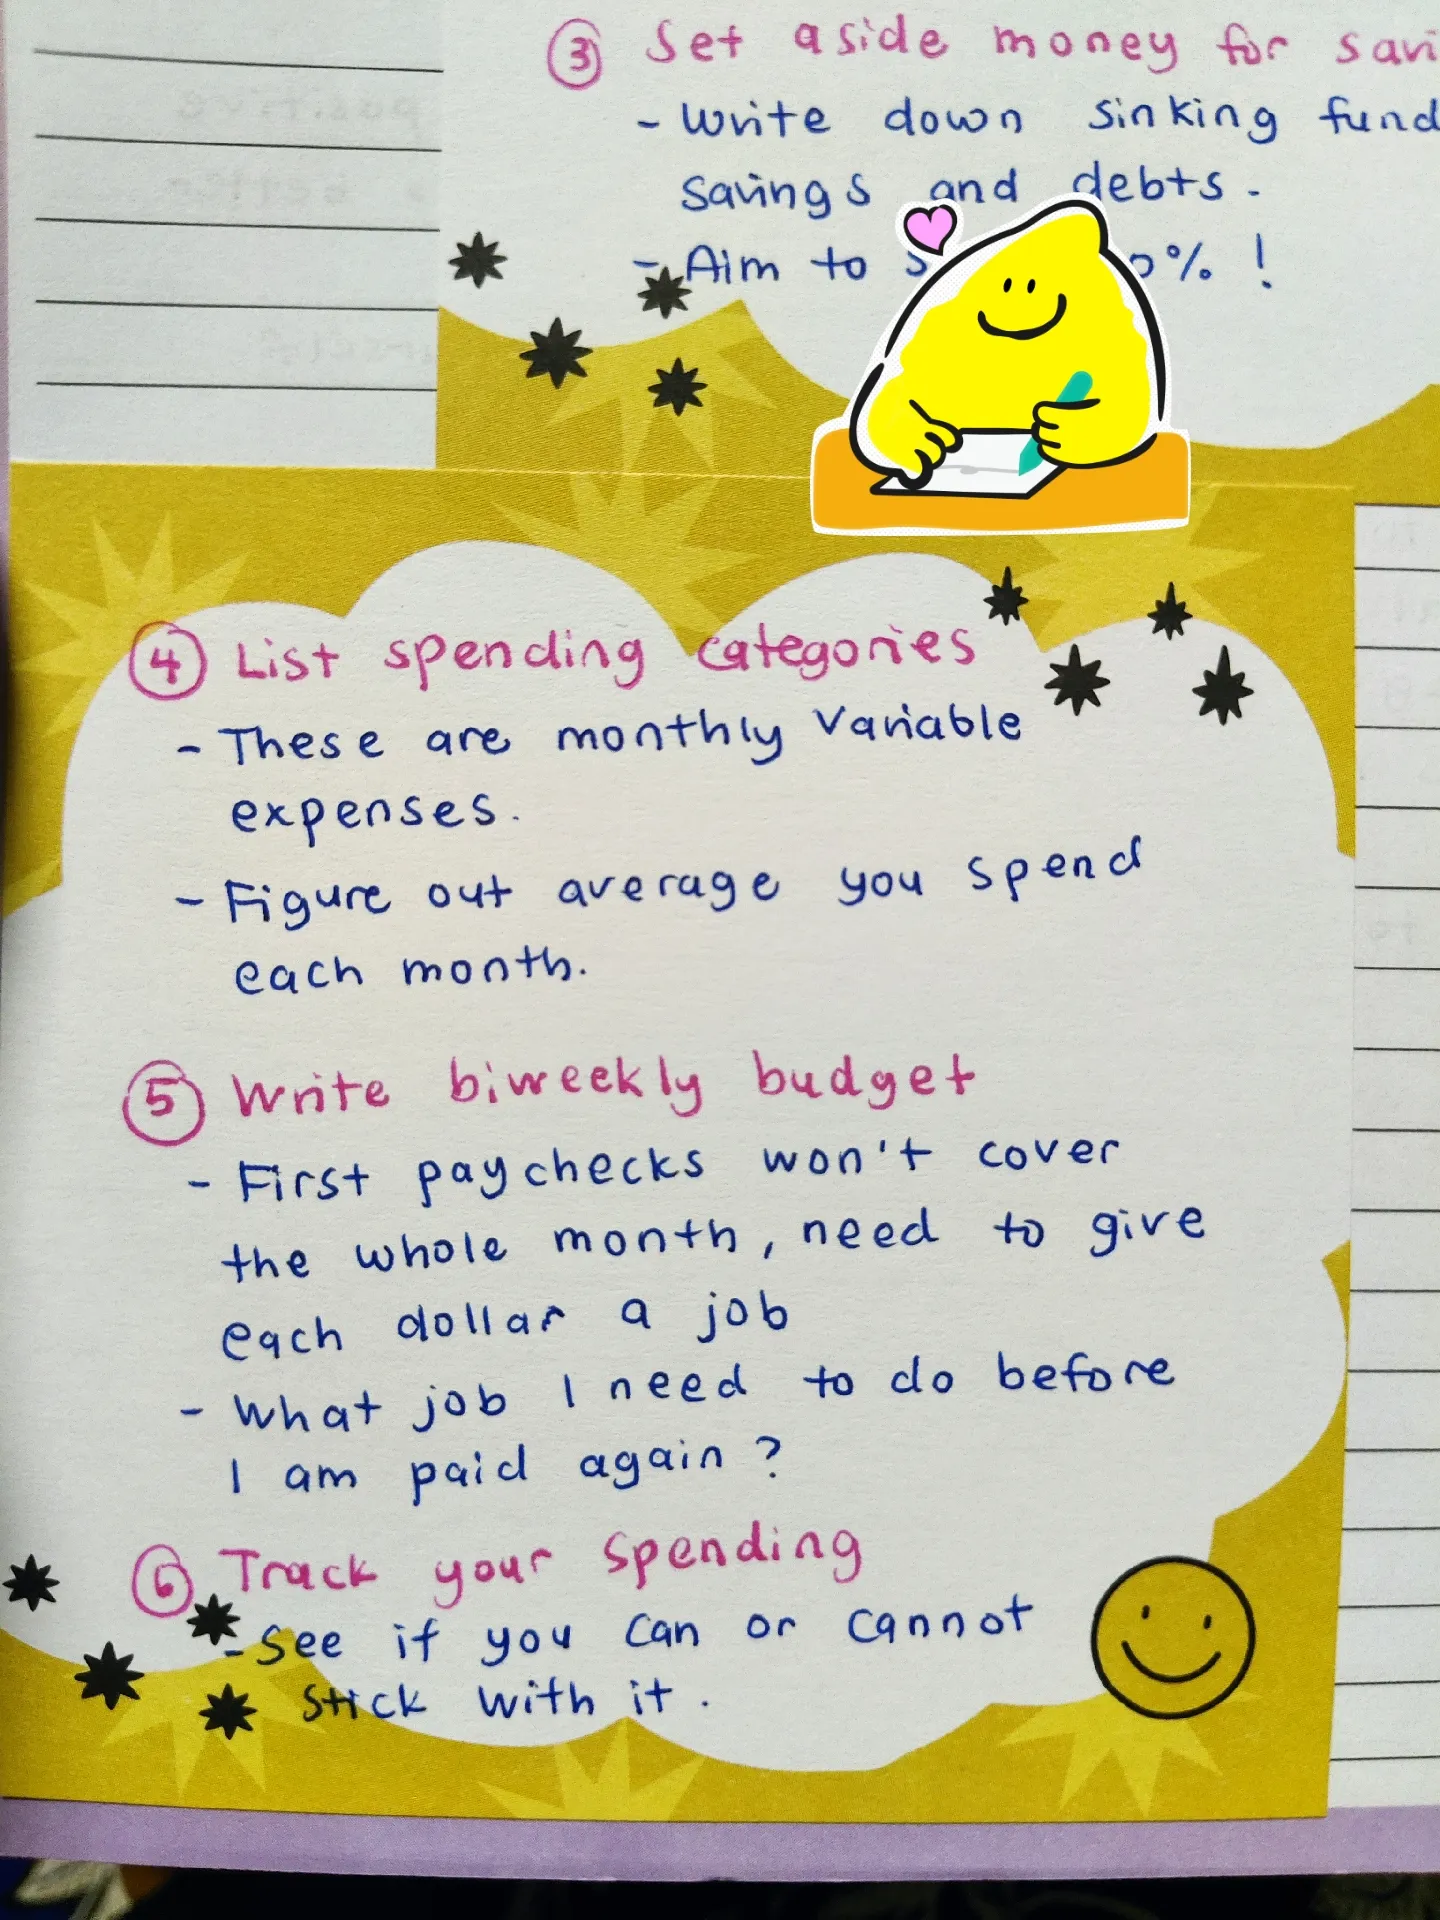 ③ Set aside money for
- Write down sinking
savings and debts.
- Aim to %!
④ List spending categories
- These are monthly variable
expenses.
- Figure out average you spend
each month.
⑤ Write biweekly budget
- First paychecks won't cover
the whole month, need to give
each dollar a job
- What job I need to do before
I am paid again?
⑥ Track your spending
- See if you can or cannot
stick with it.